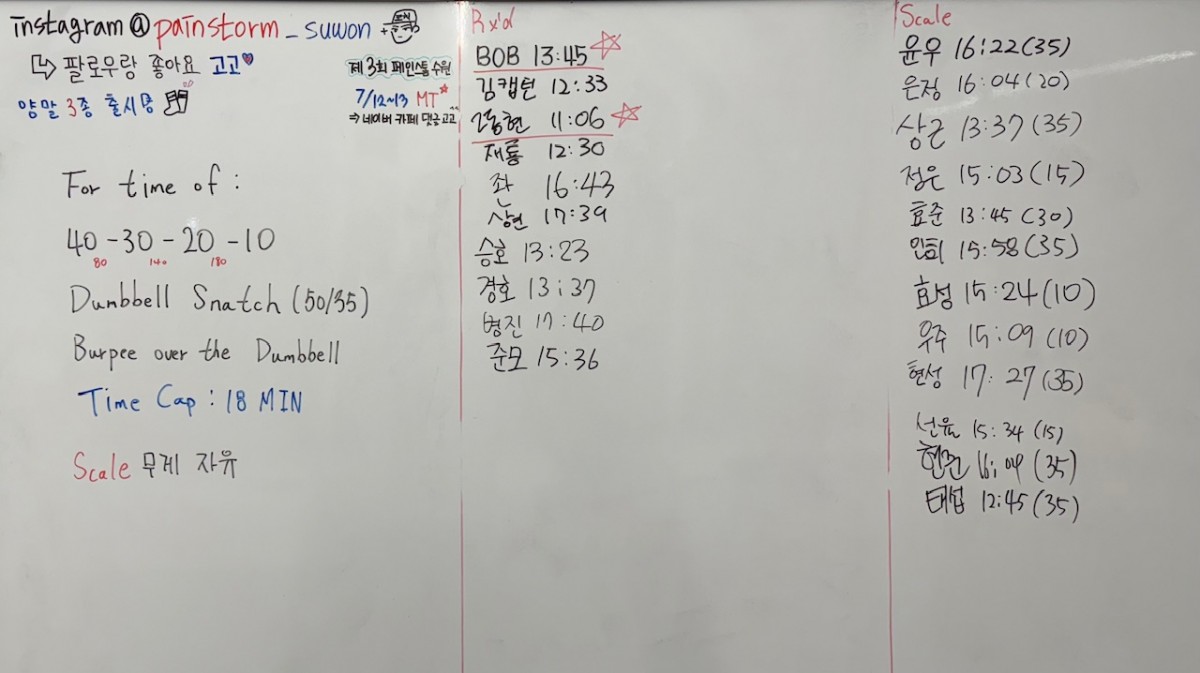 instagram @ painstorm _ suwon
↳ 팔로우랑 좋아요 고고♥
양말 3종 출시용
제 3회 페인스톰 수원
7/12~13 MT
⇒ 네이버 카페 댓글 고고
For time of :
40 - 30 - 20 - 10
80 140 180
Dumbbell Snatch (50/35)
Burpee over the Dumbbell
Time Cap : 18 MIN
Scale 무게 자유
Rx'd
BOB 13:45
김캡틴 12:33
11:06
재룡 12:30
좐 16:43
상현 17:39
승호 13:23
경호 13:37
병진 17:40
준모 15:36
Scale
윤우 16:22(35)
은정 16:04(20)
상근 13:37(35)
정은 15:03(15)
효준 13:45(30)
15:58(35)
효성 15:24(10)
우주 15:09(10)
현성 17:27(35)
선율 15:34(15)
현준 16:04(35)
태섭 12:45(35)